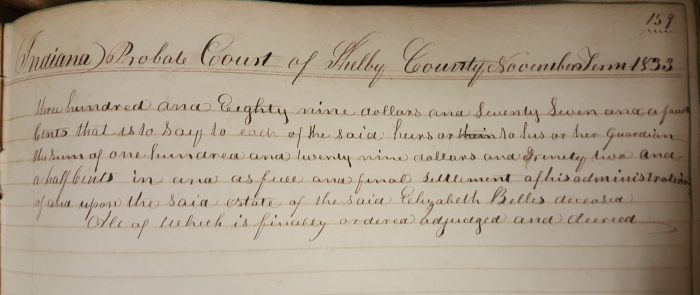 159
Indiana Probate Court of Shelby County November Term 1833
three hundred and Eighty nine dollars and Seventy Seven and a
Cents that is to Say to each of the said heirs or their to his or her Guardian
the sum of one hundred and twenty nine dollars and Ninety two and
a half Cents in and as full and final settlement of his administration
of and upon the said estate of the said Elizabeth Belles deceased
All of which is finally ordered adjudged and decreed